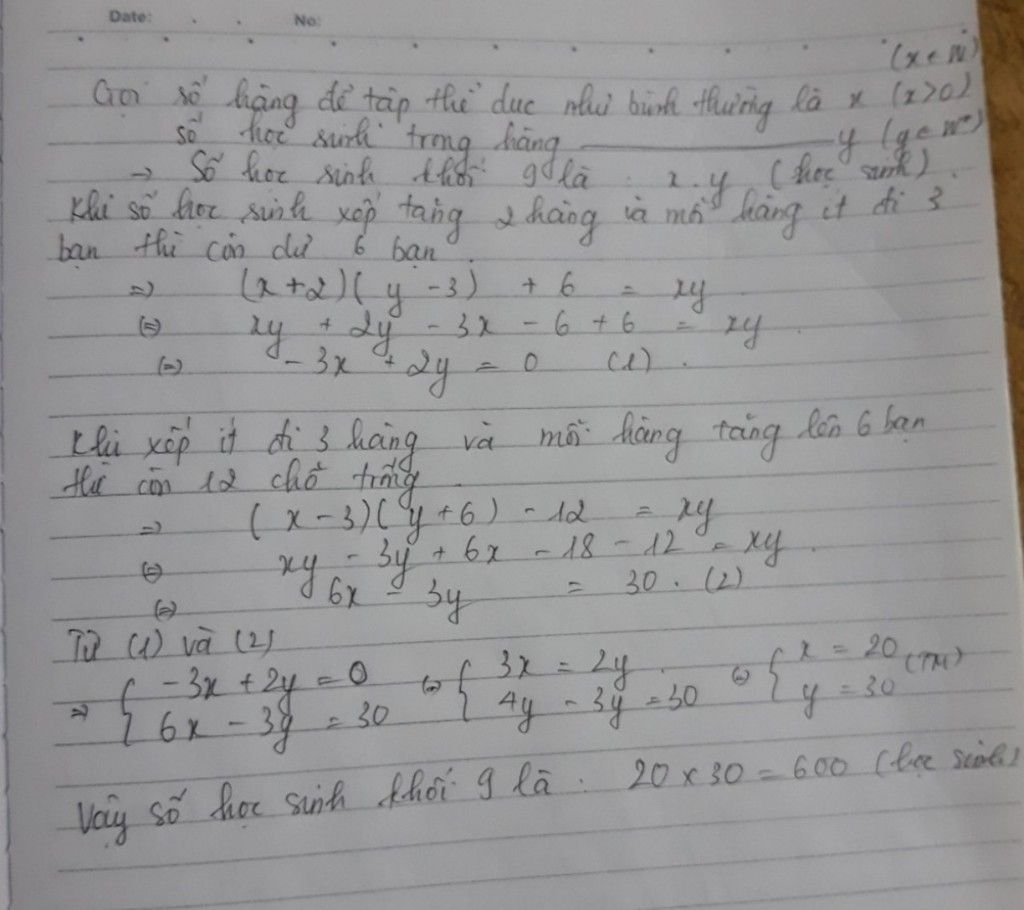 Date: . . No:
(x ∈ N)
Gọi số hàng để tập thể dục như bình thường là x (x>0)
số học sinh trong hàng ——— y (y ∈ N*)
→ Số học sinh khối 9 là : x.y (học sinh).
Khi số học sinh xếp tăng 2 hàng và mỗi hàng ít đi 3
bạn thì còn dư 6 bạn.
=> (x+2)(y-3) + 6 = xy
(=) xy + 2y - 3x - 6 + 6 = xy.
(=) -3x + 2y = 0 (1).
Khi xếp ít đi 3 hàng và mỗi hàng tăng lên 6 bạn
thì còn 12 chỗ trống.
=> (x-3)(y+6) - 12 = xy
(=) xy - 3y + 6x - 18 - 12 = xy.
(=) 6x - 3y = 30. (2)
Từ (1) và (2)
=> { -3x + 2y = 0 (=) { 3x = 2y. (=) { x = 20 (TM)
6x - 3y = 30 4y - 3y = 30 y = 30
Vậy số học sinh khối 9 là : 20 x 30 = 600 (học sinh)